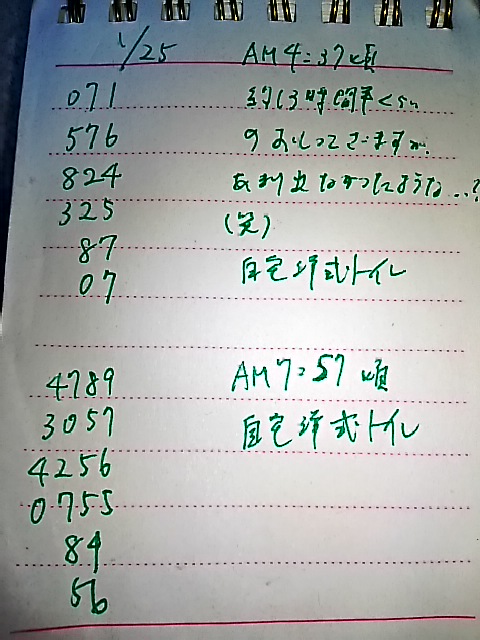 1/25 AM4:37頃
071 約13時間半くらい
576 のおしっこでございますが、
824 あまり出なかったような…?
325 (笑)
87 自宅洋式トイレ
07
4789 AM7:57頃
3057 自宅洋式トイレ
4256
0755
84
56